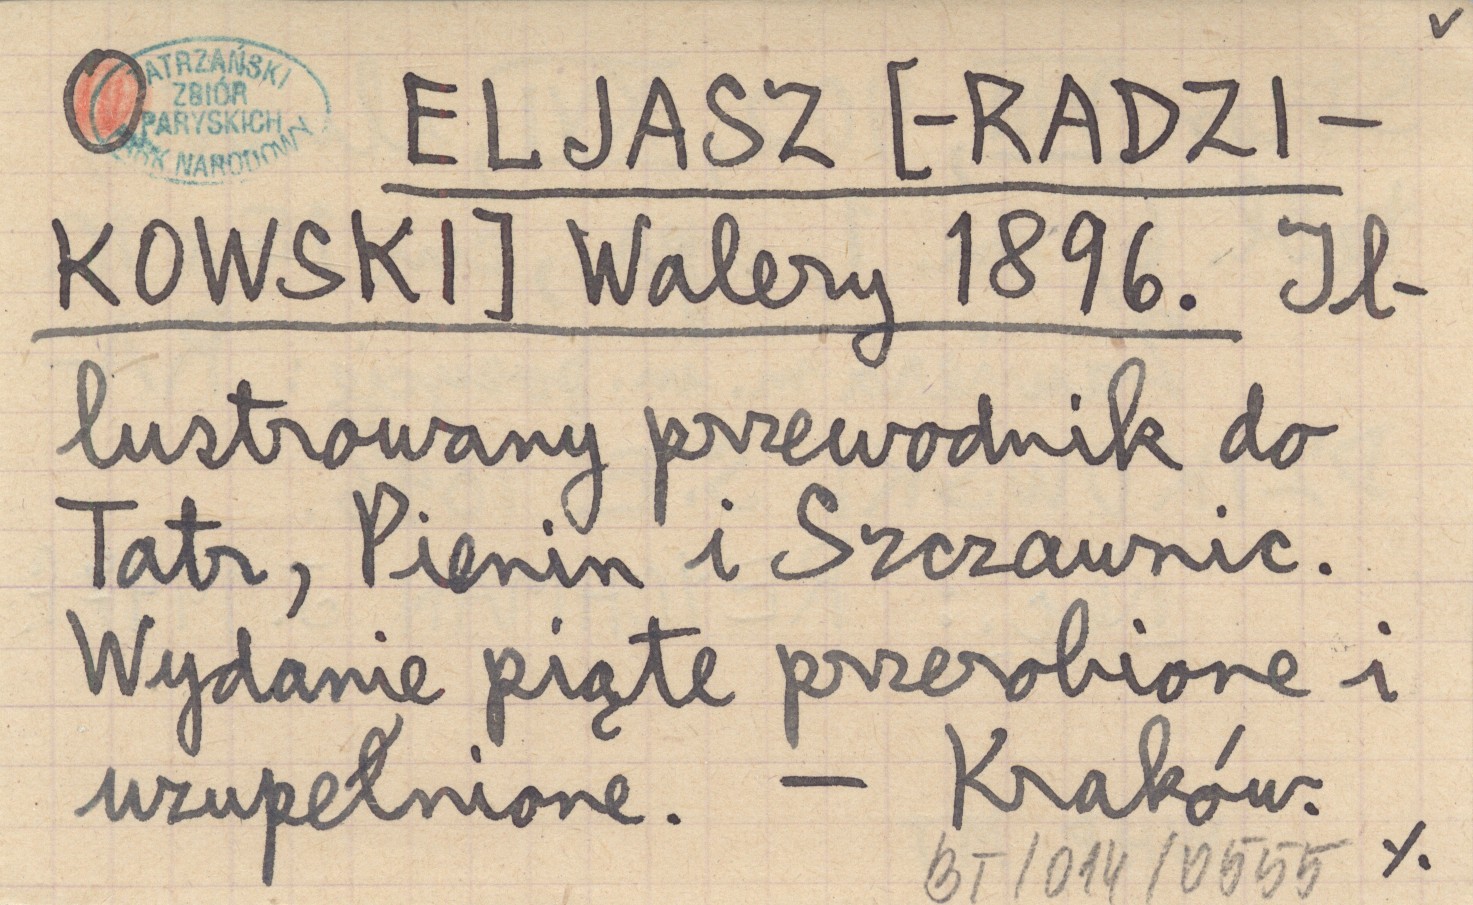 v
TATRZAŃSKI
ZBIÓR
PARYSKICH
PARK NARODOWY
ELJASZ [-RADZI-
KOWSKI] Walery 1896. Il-
lustrowany przewodnik do
Tatr, Pienin i Szczawnic.
Wydanie piąte przerobione i
uzupełnione. — Kraków:
BT/014/0555 ⁒